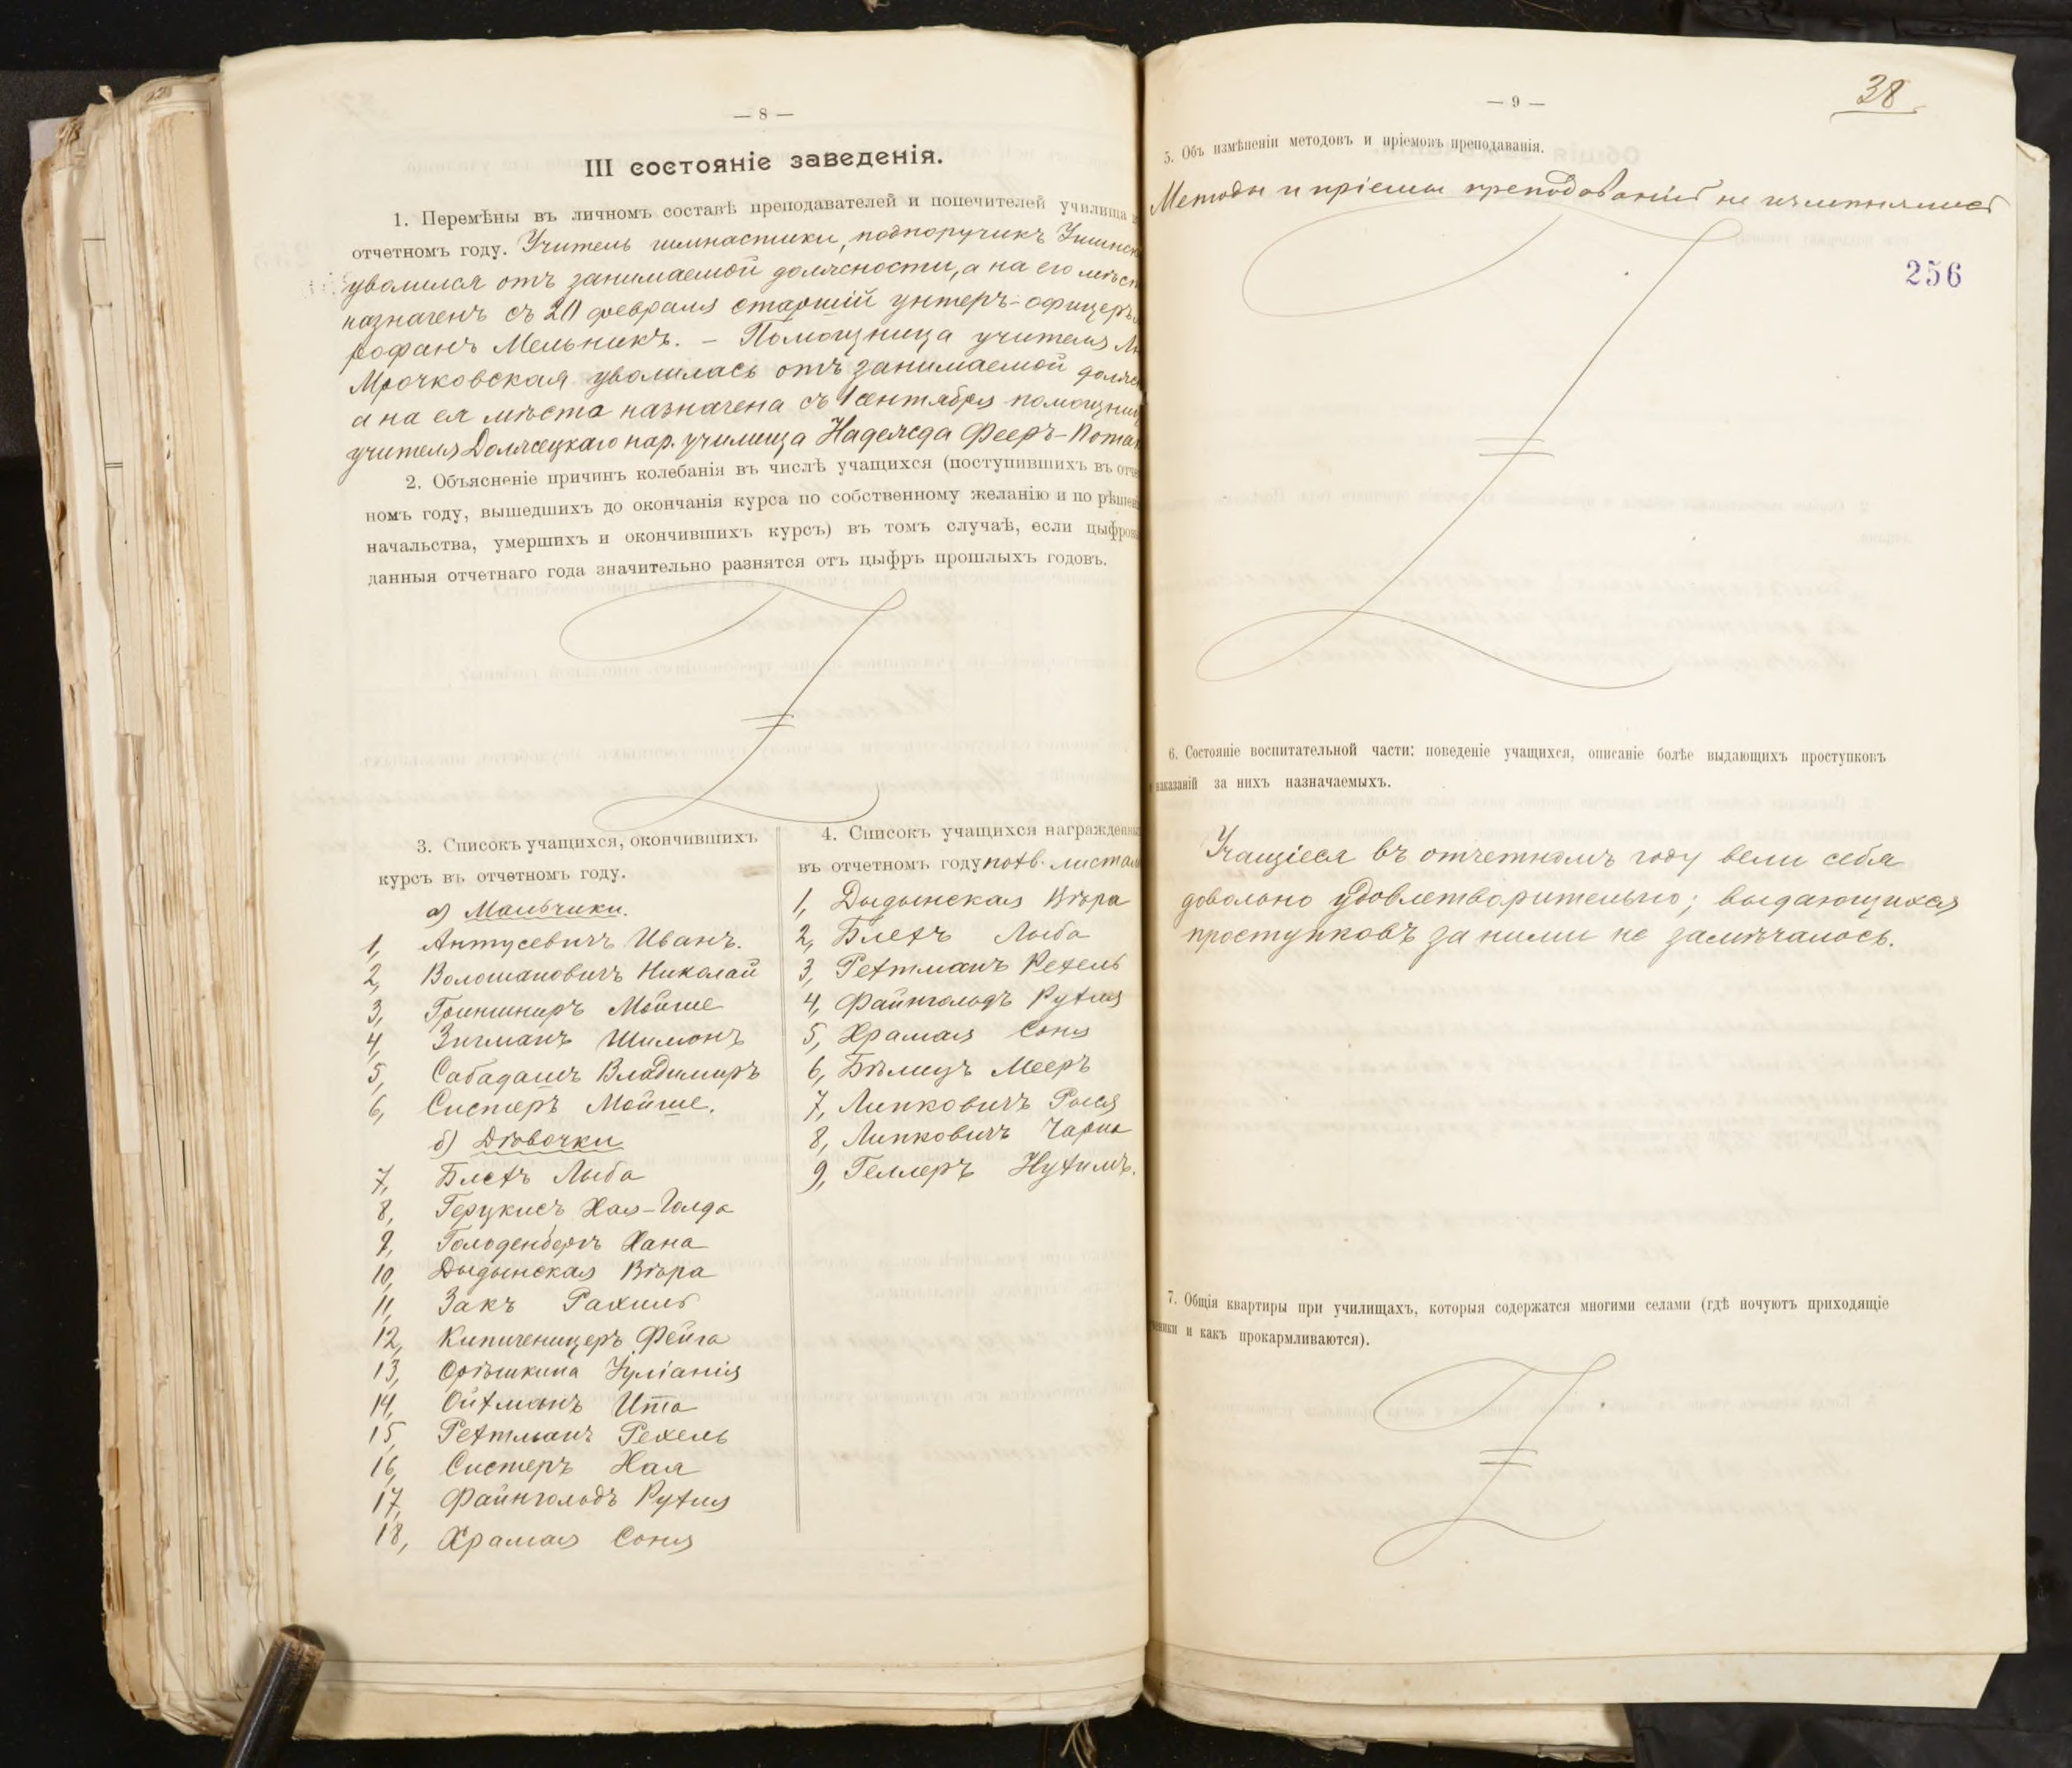 — 8 —
III состояніе заведенія.
1. Перемѣны въ личномъ составѣ преподавателей и попечителей училища
отчетномъ году. Учитель гимнастики, подпоручикъ
уволился отъ занимаемой должности, а на его мѣст
назначенъ съ 20 февраля старшій унтеръ-офицеръ
рофанъ Мельникъ. – Помощница учителя
Мрочковская уволилась отъ занимаемой должн
а на ея мѣста назначена съ 1 сентября помощниц
учителя Должецкаго нар. училища Надежда Фееръ-Пота
2. Объясненіе причинъ колебанія въ числѣ учащихся (поступившихъ въ отче
номъ году, вышедшихъ до окончанія курса по собственному желанію и по рѣшен
начальства, умершихъ и окончившихъ курсъ) въ томъ случаѣ, если цыфров
данныя отчетнаго года значительно разнятся отъ цыфръ прошлыхъ годовъ.
3. Списокъ учащихся, окончившихъ
курсъ въ отчетномъ году.
а) Мальчики.
1, Антусевичъ Иванъ.
2, Волошановичъ Николай
3, Гринширъ Мойше
4, Зигманъ Шимонъ
5, Сабадашъ Владимиръ
6, Систеръ Мойше.
б) Дѣвочки
7, Блехъ Лыба
8, Герцкисъ Хая-Голда
9, Гольденбергъ Хана
10, Дыдынская Вѣра
11, Закъ Рахиль
12, Кипиченицеръ Фейга
13, Орѣшкина Іуліанія
14, Ойхманъ Ита
15, Рехтманъ Рехель
16, Систеръ Хая
17, Файнгольдъ Рухля
18, Храмая Соня
4. Списокъ учащихся награжденны
въ отчетномъ году похв. листам
1, Дыдынская Вѣра
2, Блехъ Лыба
3, Рехтманъ Рехель
4, Файнгольдъ Рухля
5, Храмая Соня
6, Бѣлицъ Мееръ
7, Липковичъ Рыся
8, Липковичъ Чарна
9, Геллеръ Нухимъ.
— 9 —
38
5. Объ измѣненіи методовъ и пріемовъ преподаванія.
Методы и пріемы преподаванія не измѣнялись
256
6. Состояніе воспитательной части: поведеніе учащихся, описаніе болѣе выдающихъ проступковъ
и наказаній за нихъ назначаемыхъ.
Учащіеся въ отчетномъ году вели себя
довольно удовлетворительно; выдающихся
проступковъ за ними не замѣчалось.
7. Общія квартиры при училищахъ, которыя содержатся многими селами (гдѣ ночуютъ приходящіе
ученики и какъ прокармливаются).